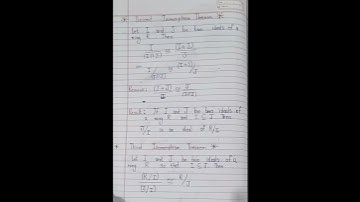 * Second Isomorphism Theorem *
Let I and J be two ideals of a
ring R. Then
I/(I∩J) ≅ (I+J)/J
Remark: (I+J)/I ≅ J/(I∩J)
Result: If I and J be two ideals of
a ring R and I ⊆ J. Then
J/I is an ideal of R/I
* Third Isomorphism Theorem *
Let I and J be two ideals of a
ring R so that I ⊆ J. Then
(R/I)/(J/I) ≅ R/J